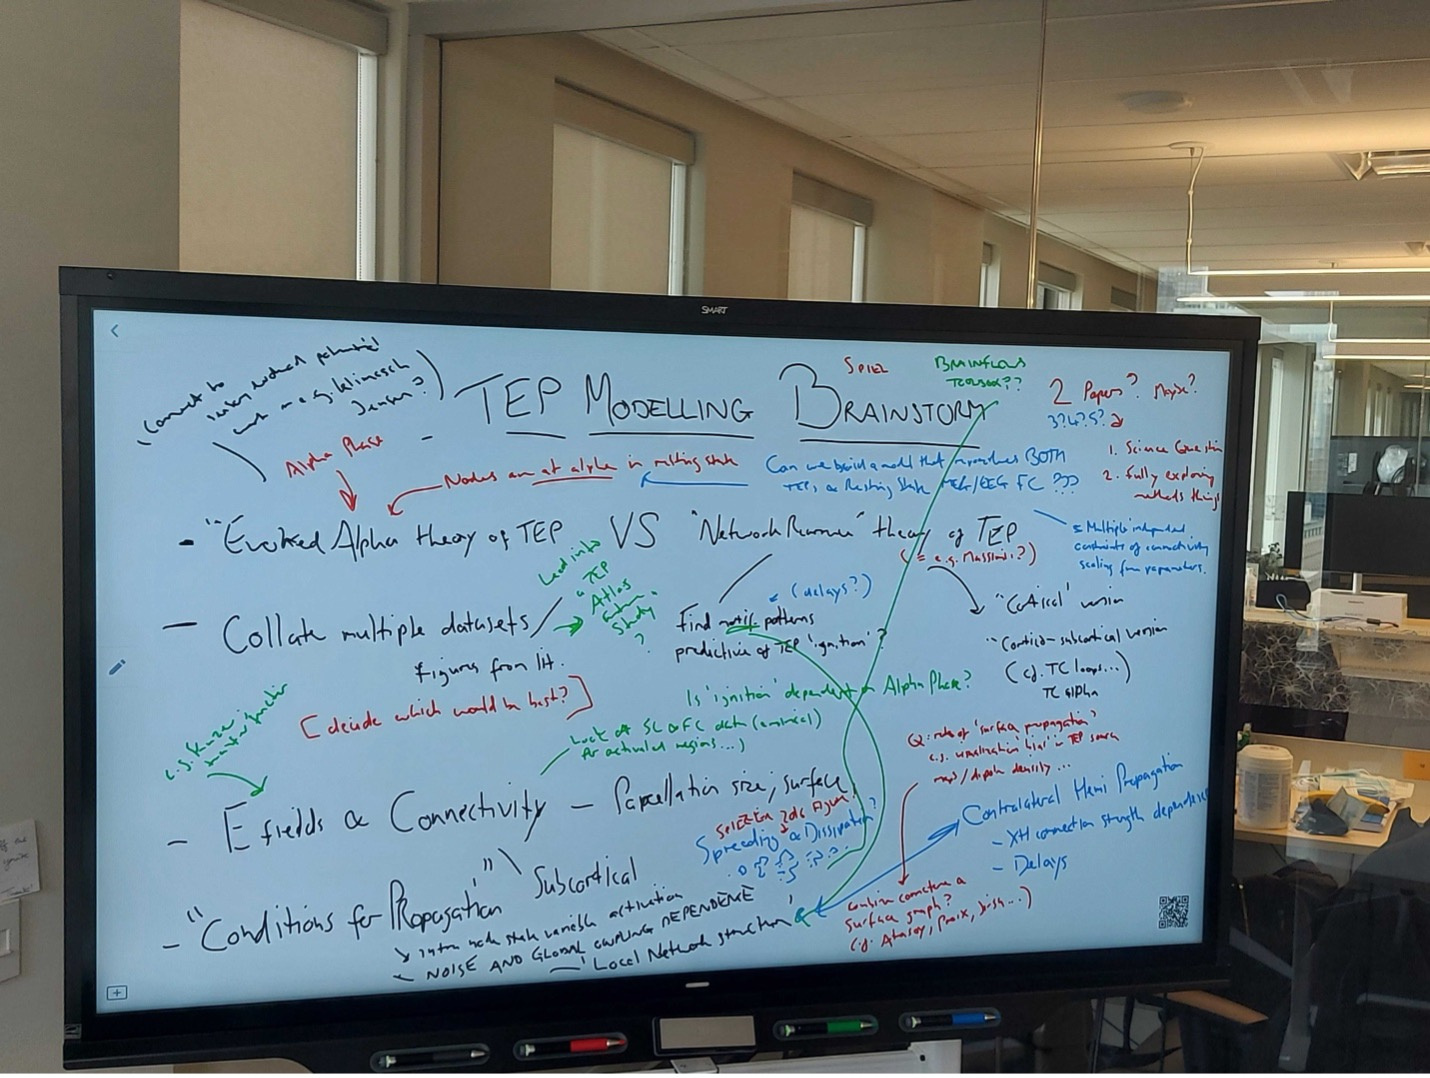 SMART
(Connect to
evoked potential
work in e.g. Klimesch
Jensen?)
TEP MODELLING BRAINSTORM
SPIEL
BRAINFLOWS
TOOLBOX??
2 Papers? Maybe?
3? 4? 5?
1. Science Question
2. Fully exploring
methods things
Alpha Phase
- Nodes are at alpha in resting state
Can we build a model that reproduces BOTH
TEPs & Resting State MEG/EEG FC ???
= Multiple independent
constraints of connectivity
scaling from parameters.
- "Evoked Alpha theory of TEP VS 'Network Reverb' theory of TEP
(= e.g. Massimini?)
Lead into
"TEP
Atlas
Study"
?
- Collate multiple datasets /
figures from lit.
[decide which would be best?]
(delays?)
Find motif patterns
predictive of TEP 'ignition'?
"Cortical" version
"Cortico-subcortical version
(cf. TC loops...)
TC alpha
Is 'ignition' dependent on Alpha Phase?
Look at SC & FC data (empirical)
for activated regions...)
Q: role of 'surface propagation'?
e.g. visualization bias in TEP source
maps / dipole density...
e.g.
- E fields & Connectivity - Parcellation size; surface
Subcortical
Spreading & Dissipation?
Contralateral Hemi Propagation
- XH connection strength dependence
- Delays
- "Conditions for Propagation"
intra node state variable activation
NOISE AND GLOBAL COUPLING DEPENDENCE
- 'Local Network structure'
Combine connectome &
surface graph?
(e.g. Atasoy, Proix, ...)